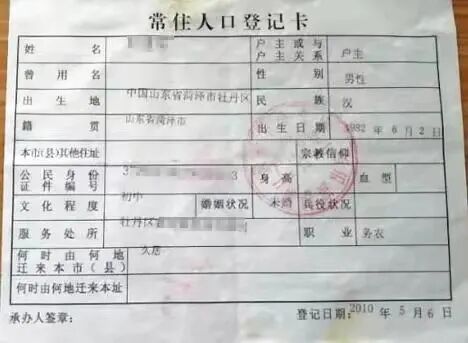 常住人口登记卡
姓 名 户主或与户主关系 户主
曾用名 性别 男性
出生地 中国山东省菏泽市牡丹区 民族 汉
籍贯 山东省菏泽市 出生日期 1982年6月2
本市(县)其他住址 宗教信仰
公民身份证件编号 3 3 身高 血型
文化程度 初中 婚姻状况 未婚 兵役状况
服务处所 牡丹区 职业 务农
何时由何地迁来本市(县) 久居
何时由何地迁来本址
承办人签章: 登记日期:2010年5月6日